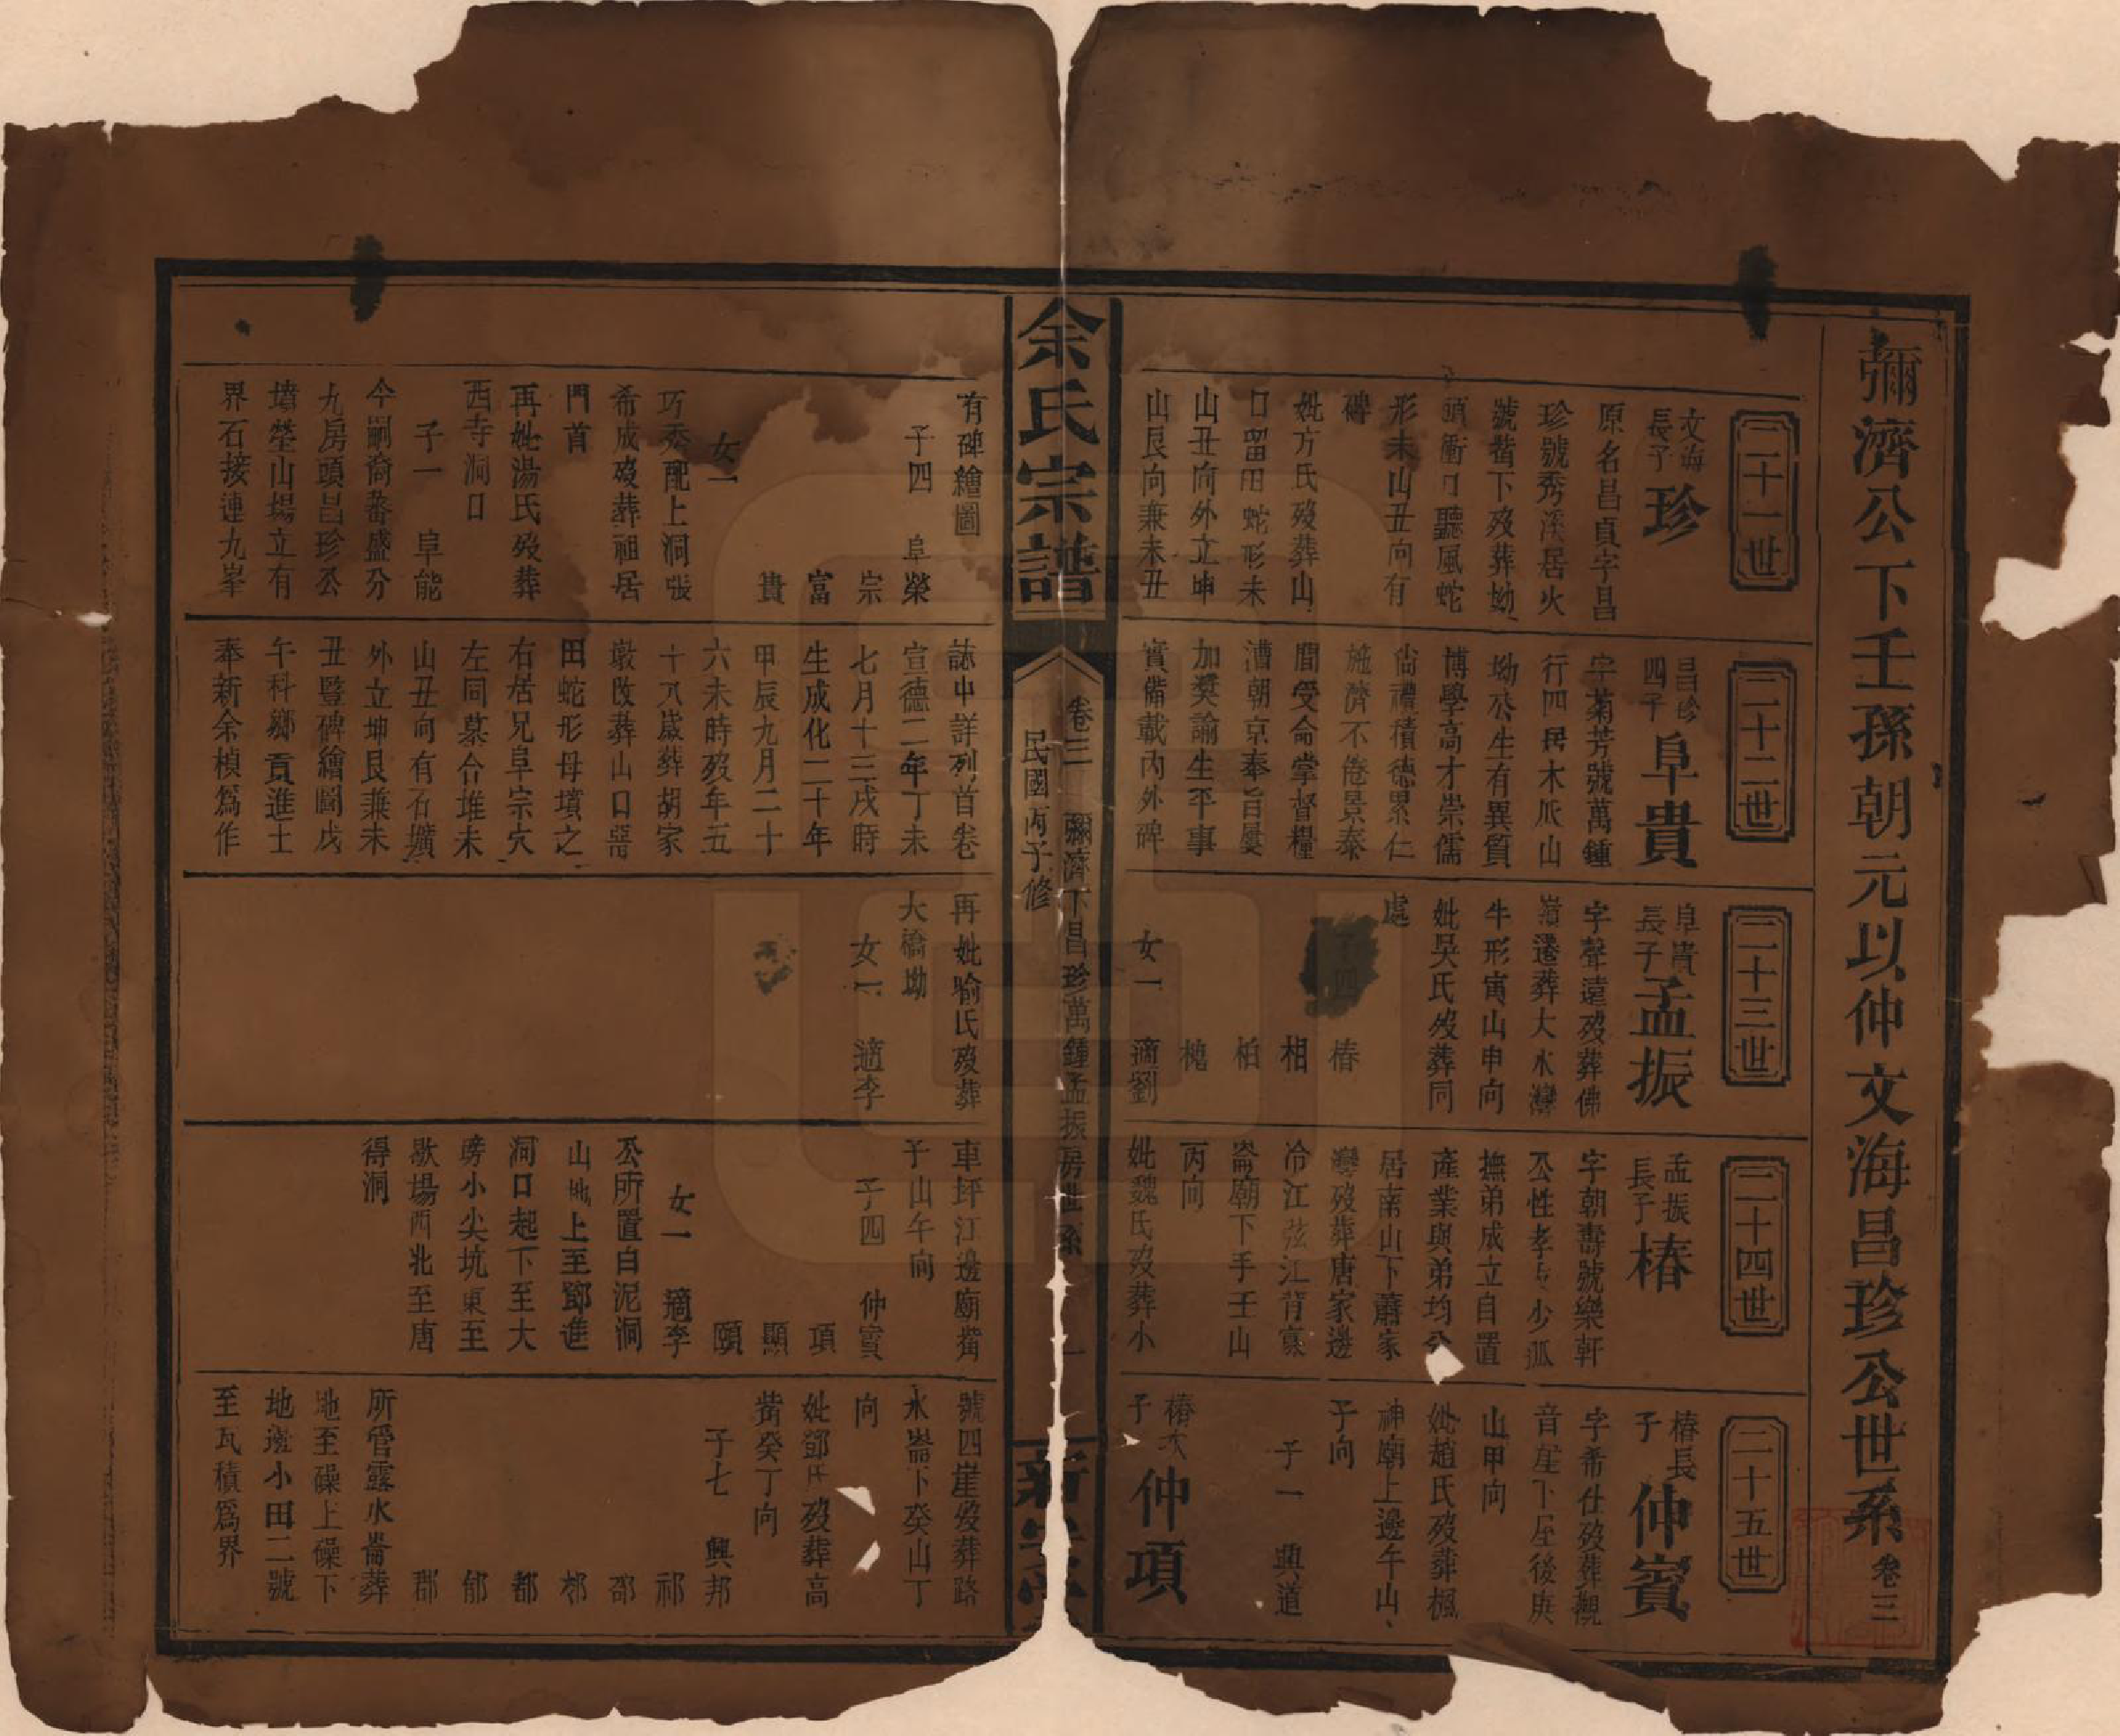 彌濟公下壬孫朝元以仲文海昌珍公世系 卷三
二十一世
文海長子 珍
原名昌貞字昌
珍號秀溪居火
號觜下歿葬坳
頭衝口聽風蛇
形未山丑向有
碑
妣方氏歿葬山
口留田蛇形未
山丑向外立坤
山艮向兼未丑
有碑繪圖
子四 阜榮
宗
富
貴
女一
巧秀配上洞張
希成歿葬祖居
門首
再妣湯氏歿葬
西寺洞口
子一 阜能
今嗣裔蕃盛分
九房頭昌珍公
墳塋山場立有
界石接連九峯
二十二世
昌珍四子 阜貴
字菊芳號萬鍾
行四居木瓜山
坳公生有異質
博學高才崇儒
尚禮積德累仁
施濟不倦景泰
間受命掌督糧
漕朝京奉旨屢
加獎諭生平事
實備載內外碑
誌中詳列首卷
宣德二年丁未
七月十三戌時
生成化二十年
甲辰九月二十
六未時歿年五
十八歲葬胡家
墩改葬山口霤
田蛇形母墳之
右居兄阜宗穴
左同墓合堆未
山丑向有石壙
外立坤艮兼未
丑豎碑繪圖戊
午科鄉貢進士
奉新余楨爲作
二十三世
阜貴長子 孟振
字聲遠歿葬佛
嶺遷葬大水灣
牛形寅山申向
妣吳氏歿葬同
處
子四 椿
相
柏
橈
女一 適劉
再妣喻氏歿葬
大橋坳
女一 適李
二十四世
孟振長子 椿
字朝壽號樂軒
公性孝友少孤
撫弟成立自置
產業與弟均分
居南山下蕭家
灣歿葬唐家邊
冷江弦江背寡
崙廟下手壬山
丙向
妣魏氏歿葬小
車坪江邊廟觜
子山午向
子四 仲賓
項
顯
頤
女一 適李
公所置白泥洞
山地上至鄧進
洞口起下至大
塝小尖坑東至
歇場西北至唐
得洞
二十五世
椿長子 仲賓
字希仕歿葬觀
音崖下屋後庚
山甲向
妣趙氏歿葬楓
神廟上邊午山
子向
子一 興道
椿次子 仲項
號四崖歿葬路
水崙下癸山丁
向
妣鄧氏歿葬高
觜癸丁向
子七 興邦
祁
邵
邾
都
郁
郡
所管露水崙葬
地至磜上磜下
地邊小田二號
至瓦積爲界
余氏宗譜 卷三 彌濟下昌珍萬鍾孟振房世系 一
民國丙子修